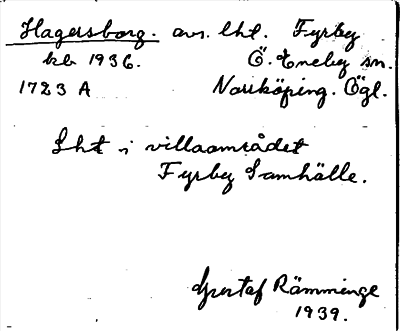 Hagersborg. avs. lht. Fyrby
kb 1936. Ö. Eneby sn.
1723 A Norrköping. Ögl.
Lht i villaområdet
Fyrby Samhälle.
Gustaf Rämminge
1939.